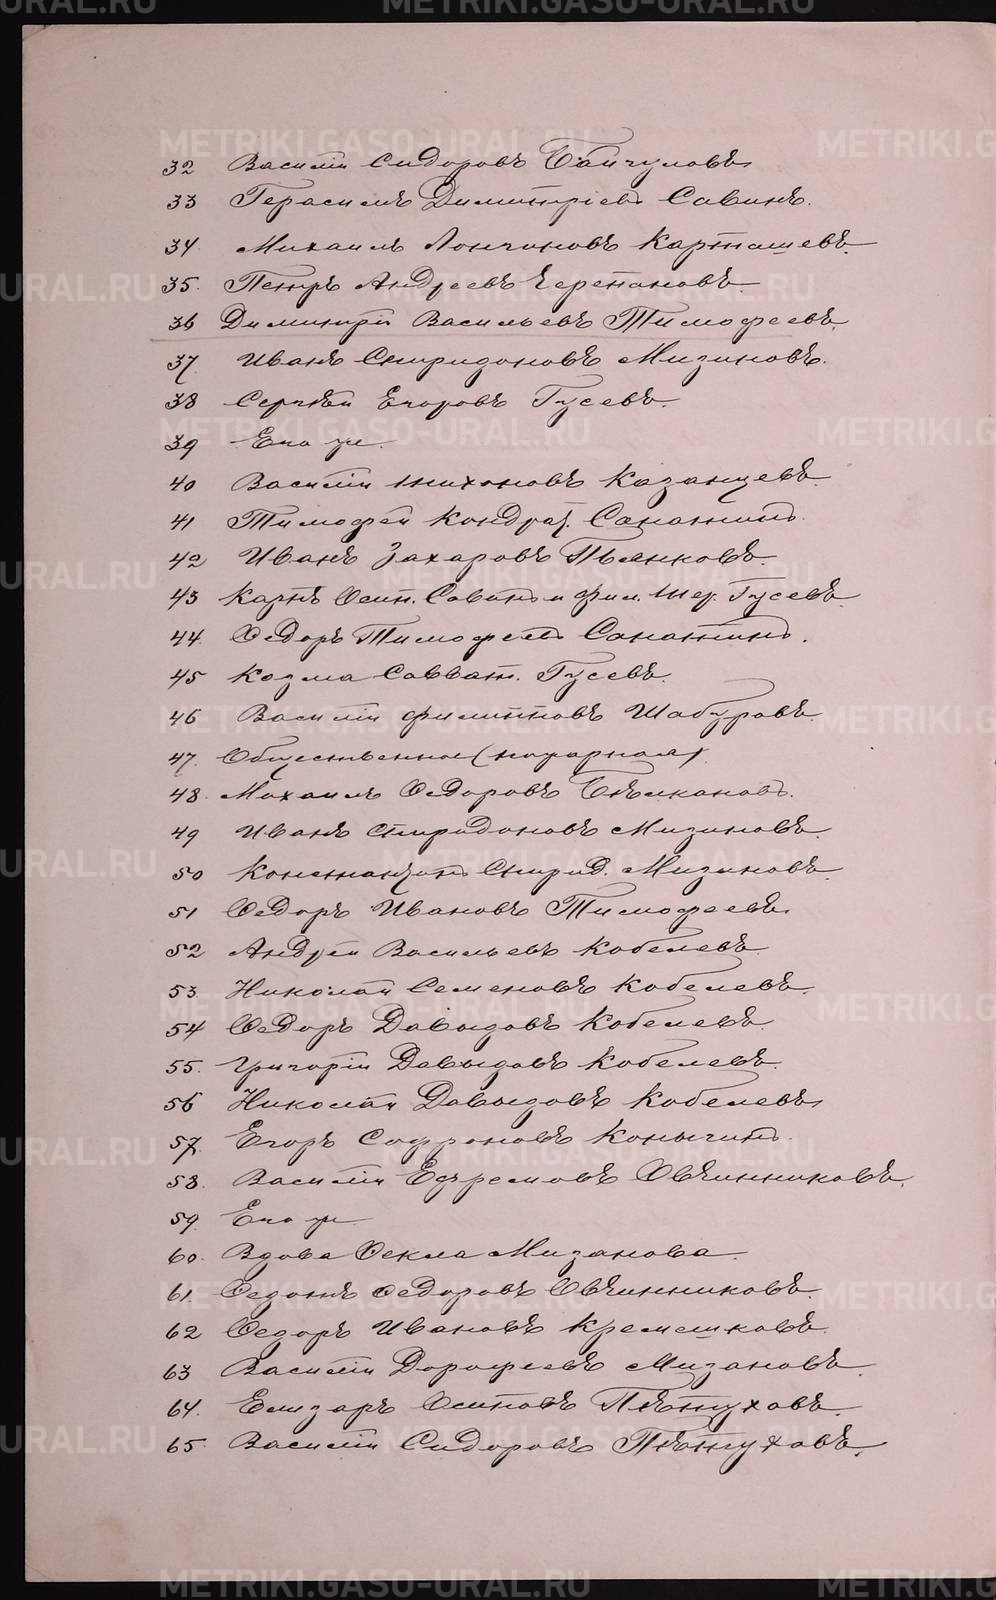 32 Василiй Сидоровъ Байчуловъ
33 Герасимъ Димитрiевъ Савинъ.
34. Михаилъ Лончиновъ Карташевъ.
35. Петръ Андреевъ Черепановъ.
36 Димитрiй Васильевъ Тимофеевъ.
37. Иванъ Спиридоновъ Мизиновъ.
38 Сергѣй Егоровъ Гусевъ.
39 Его же
40 Василiй Тихоновъ Казанцевъ.
41 Тимофей Кондрат. Санатинъ.
42 Иванъ Захаровъ Пьянковъ.
43 Карпъ Осип. Савинъ и Фил. Гусевъ.
44. Ѳедоръ Тимофеевъ Санатинъ.
45 Козма Савват. Гусевъ.
46 Василiй Филипповъ Шабуровъ.
47. Общественное (пожарная).
48. Михаилъ Ѳедоровъ
49 Иванъ Спиридоновъ Мизиновъ.
50 Константинъ Спирид. Мизиновъ.
51 Ѳедоръ Ивановъ Тимофеевъ.
52 Андрей Васильевъ Кобелевъ.
53. Николай Семеновъ Кобелевъ.
54 Ѳедоръ Давыдовъ Кобелевъ.
55. Григорiй Давыдовъ Кобелевъ.
56 Николай Давыдовъ Кобелевъ.
57. Егоръ Софроновъ Конычинъ.
58. Василiй Ефремовъ Овчинниковъ.
59. Его же
60. Вдова Ѳекла Мизанова.
61. Ѳедотъ Ѳедоровъ Овчинниковъ.
62 Ѳедоръ Ивановъ Кремешковъ.
63 Василiй Дорофеевъ Мизановъ.
64. Елизаръ Осиповъ Пѣтуховъ.
65. Василiй Сидоровъ Пѣтуховъ.
METRIKI.GASO-URAL.RU